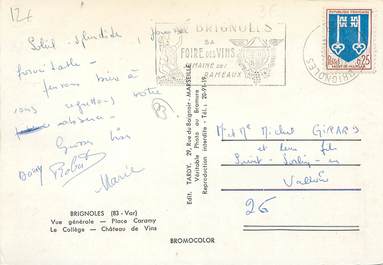 12f
BRIGNOLES
SA
FOIRE DES VINS
SEMAINE DES
RAMEAUX
REPUBLIQUE FRANÇAISE
0,25
MONT-DE-MARSAN
BRIGNOLES
Soleil splendide, journée
formidable -
pensons bien à
vous regrettons votre
absence.
Grosses bises
Dany Robert
Marie
Edit. TARDY, 29, Rue du Baignoir - MARSEILLE
Véritable Photo au Bromure
Reproduction interdite - Tél. : 20-91-19
Mr et Me Michel GIRARD
et leur fils
Saint-Sorlin en
Valloire
26
BRIGNOLES (83 - Var)
Vue générale — Place Caramy
Le Collège — Château de Vins
BROMOCOLOR